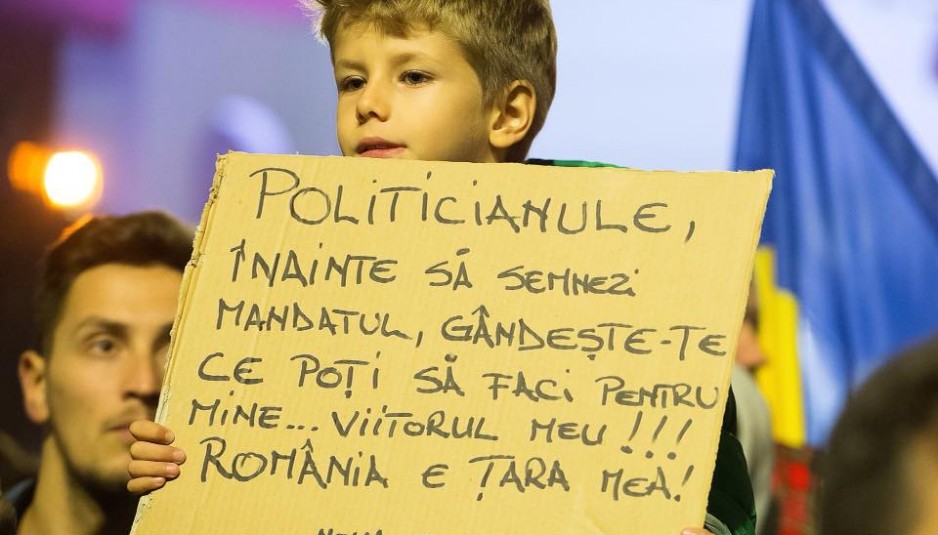 POLITICIANULE,
ÎNAINTE SĂ SEMNEZI
MANDATUL, GÂNDEȘTE-TE
CE POȚI SĂ FACI PENTRU
MINE... VIITORUL MEU!!!
ROMÂNIA E ȚARA MEA!